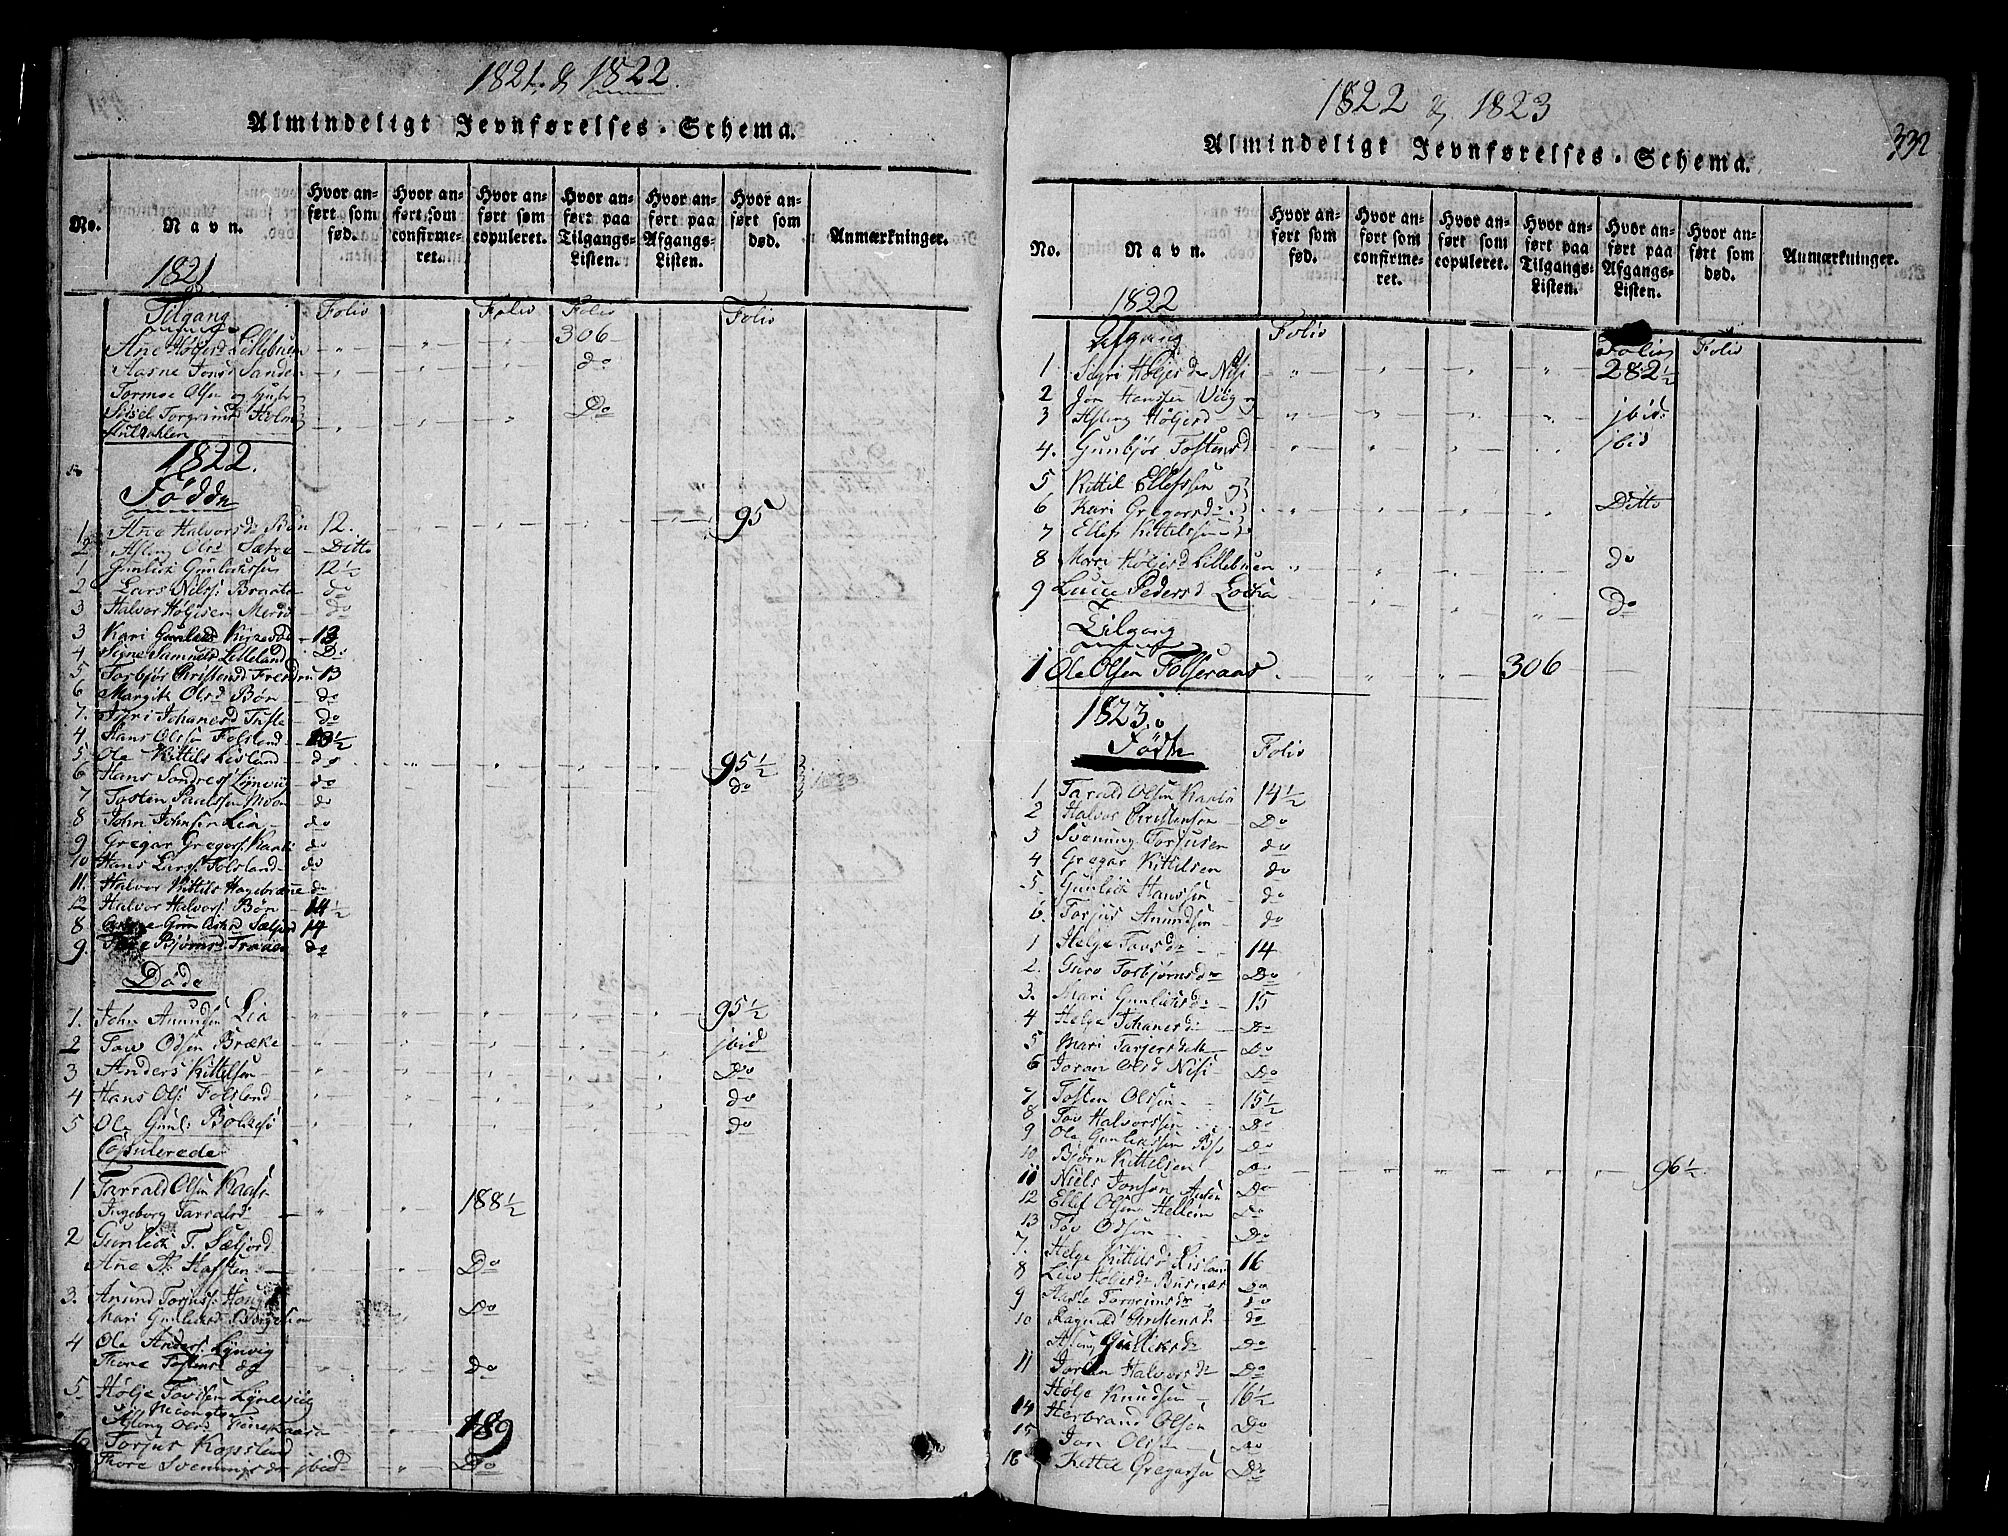 1821 & 1822.
Almindeligt Jevnførelses-Schema.
No.
Navn.
Hvor anført som fød.
Hvor anført som confirmeret.
Hvor anført som copuleret.
Hvor anført paa Tilgangs-Listen.
Hvor anført paa Afgangs-Listen.
Hvor anført som død.
Anmærkninger.
1821
Tilgang Folio Folio Folio Folio
Ane Høljesd Lillebuen 306
Aasne Jonsd Sanden do
Tormoe Olsen og Hustr
Sissel Torgrimsd Do
1822.
Födde
1 Ane Halvorsd 12. 95
2 Asling Olsd Sætre Ditto
1 Gunlich Gunlichsen 12½
2 Lars Nilss: Braata do
3 Halvor Høljesen do
3 Kari Gunlichsd 13
4 Signe Samuelsd Lilleland D:
5 Torbjør Christensd 13
6 Margith Olsd Bøn do
7. Johanesd do
4 Hans Olsen Folsland 13½
5 Ole Kittils Lisland do 95½
6 Hans Sondress Lynvig do do
7 Tosten Paulsen Moen do
8 John Johnsen Lia do
9 Gregar Gregars: do
10 Hans Larss Folsland do
11. Halvor Kittils Hagebræne do
12 Halvor Halvors: Bøn 14½
8 Gunlichsd 14
9. Bjørnsd do
Döde
1. John Anundsen Lia 95½
2 Tov Odsen Bræke jbid
3 Anders Kittelsen Do
4 Hans Ols: Folsland do
5 Ole Gunl: Bolkesø do
Copulerede
1 Tarrald Olsen Kaas
Ingeborg Tarralds: 188½
2 Gunlich T. Sæljord
Ane A. Haften Do
3. Anund Torjuss:
Mari Gunlichsd Do
4 Ole Anders: Lynvig
Thore Tostensd do
5 Hølje Tovsen
Asling Olsd 189
6 Torjus Kopsland
Thore Svenningsd jbid Do
1822 & 1823
332
Almindeligt Jevnførelses-Schema.
No.
Navn.
Hvor anført som fød.
Hvor anført som confirmeret.
Hvor anført som copuleret.
Hvor anført paa Tilgangs-Listen.
Hvor anført paa Afgangs-Listen.
Hvor anført som død.
Anmærkninger.
1822
Afgang Folio Folio Folio
1 Sigri Høljesd Nesi 282½
2 Jon Hanssen Viig og
3 Asling Høljesd jbid:
4. Gunbjør Tostensd jbid
5 Kittil Ellefssen og
6 Kari Gregarsd Ditto
7 Ellef Kittelssen
8 Marri Høljesd Lillebuen do
9 Lucie Pedersd Do
Tilgang
1 Ole Olsen Folseraas 306
1823.
Födte Folio
1 Tarald Olsen 14½
2 Halvor Christensen Do
3 Svenning Torjusen do
4 Gregar Kittilsen do
5. Gunlich Hanssen do
6. Torjus Anundsen do
1 Helge Tovsdr 14
2. Guro Torbjørnsdr Do
3. Mari Gunlichsd: 15
4 Helge Johanesd: Do
5 Mari Tarjersdatt Do
6 Joran Olsd Nesi Do
7 Tosten Olssen 15½
8 Tov Halvorssen Do
9 Ole Gunlichssen Do
10 Bjørn Kittelsen Do 96½
11 Niels Jonsen Do
12 Ellef Olsen Hellem Do
13 Tov Odsen Do
7. Helge Kittilsd Lisland 16
8 Liv Høljesd Do
9 Aasle Torgrimsdr do
10 Ragnild Christensd: do
Asling Gullichsdr Do
11 Joran Halvorsdr Do
Hølje Knudsen 16½
14 Herbrand Olsen Do
15 Jon Olssen Do
16 Kittil Gregarsen Do